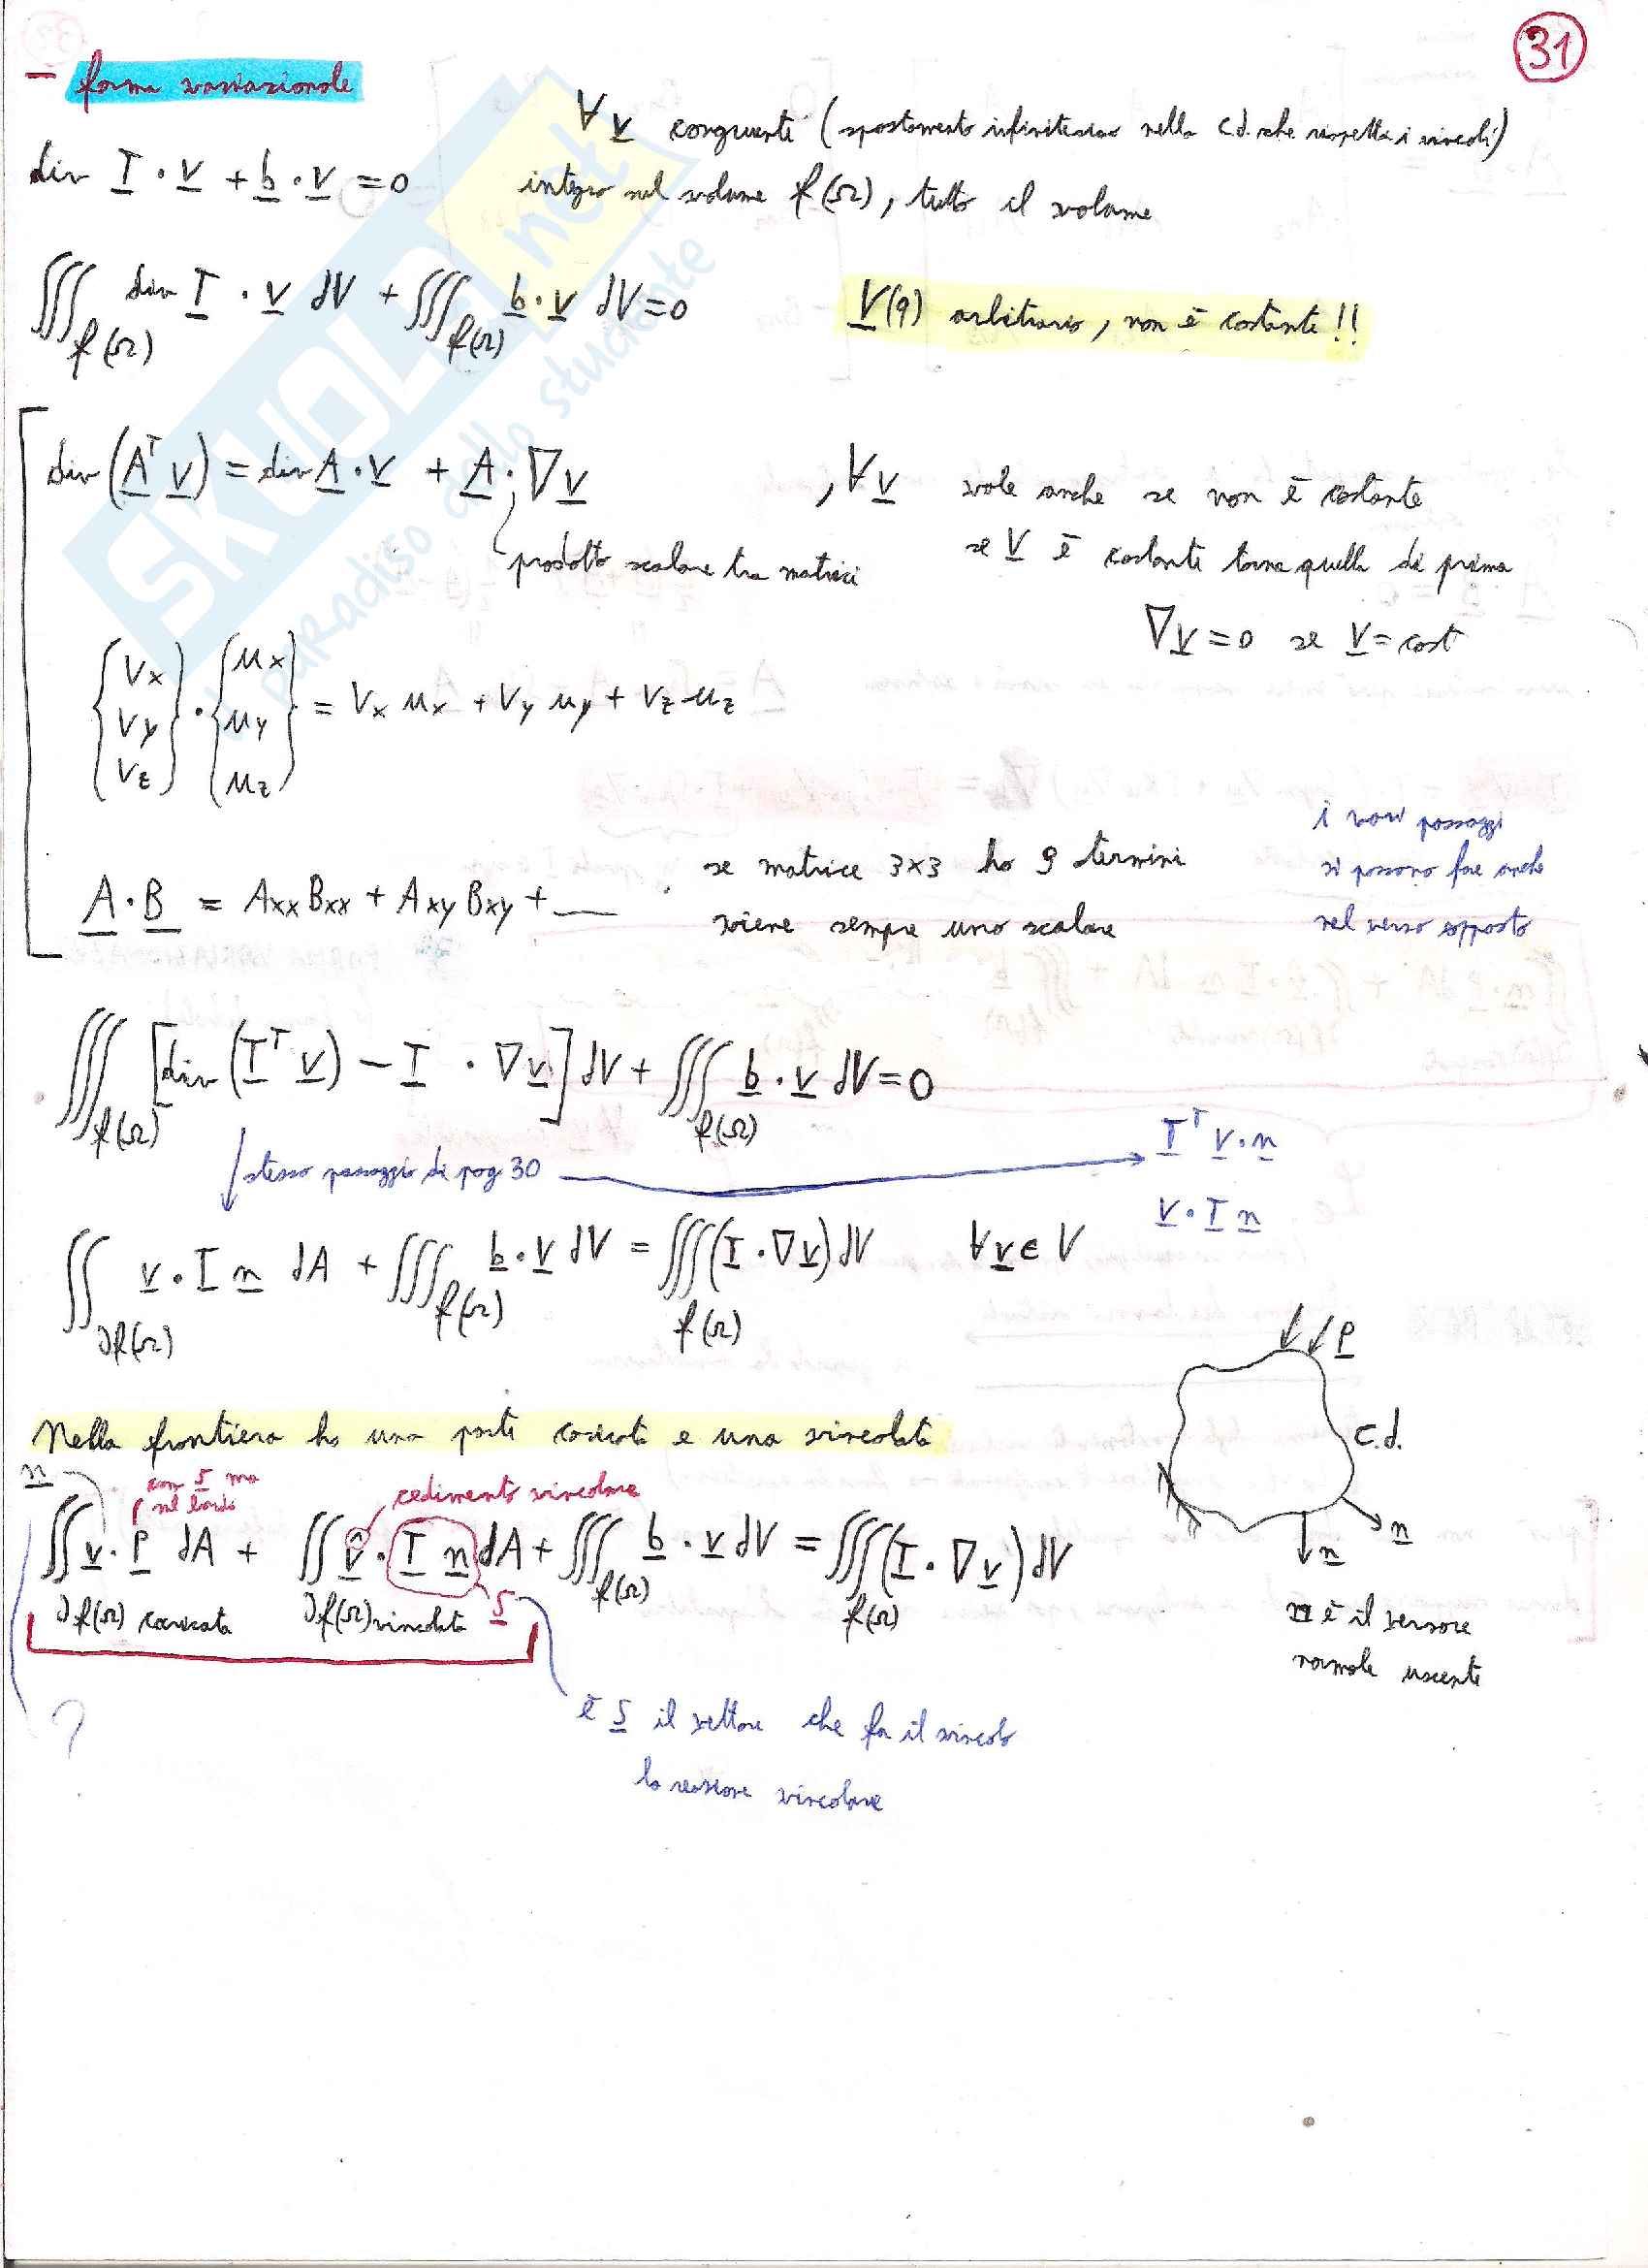 31
- forma variazionale
∀ v congruente (spostamento infinitesimo nella c.d. che rispetta i vincoli)
div T · v + b · v = 0
integro nel volume f(Ω), tutto il volume
∭f(Ω) div T · v dV + ∭f(Ω) b · v dV = 0
v(q) arbitrario, non è costante!!
div(Aᵀ v) = div A · v + A · ∇v , ∀v vale anche se non è costante
prodotto scalare tra matrici
se v è costante torna quella di prima
∇v = 0 se v = cost
{Vx Vy Vz} · {ux uy uz} = Vx ux + Vy uy + Vz uz
A · B = Axx Bxx + Axy Bxy + __
se matrice 3x3 ho 9 termini
viene sempre uno scalare
i vari passaggi
si possono fare anche
nel verso opposto
∭f(Ω) [div(Tᵀ v) - T · ∇v] dV + ∭f(Ω) b · v dV = 0
stesso passaggio di pag 30
Tᵀ v · n
v · T n
∬∂f(Ω) v · T n dA + ∭f(Ω) b · v dV = ∭f(Ω) (T · ∇v) dV ∀ v ∈ V
p
c.d.
n
n
n è il versore
normale uscente
Nella frontiera ho una parte caricata e una vincolata
n
ma
sul bordo
cedimento vincolare
∬∂f(Ω) caricata v · p dA + ∬∂f(Ω) vincolata v̂ · T n dA + ∭f(Ω) b · v dV = ∭f(Ω) (T · ∇v) dV
s
?
è s il vettore che fa il vincolo
la reazione vincolare
SKUOLA.net
il paradiso dello studente